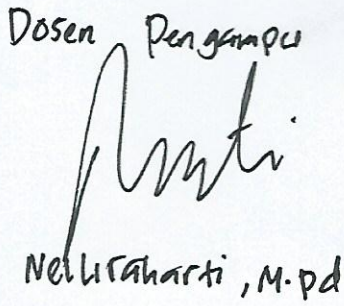 Dosen Pengampu
Nelliraharti, M.pd